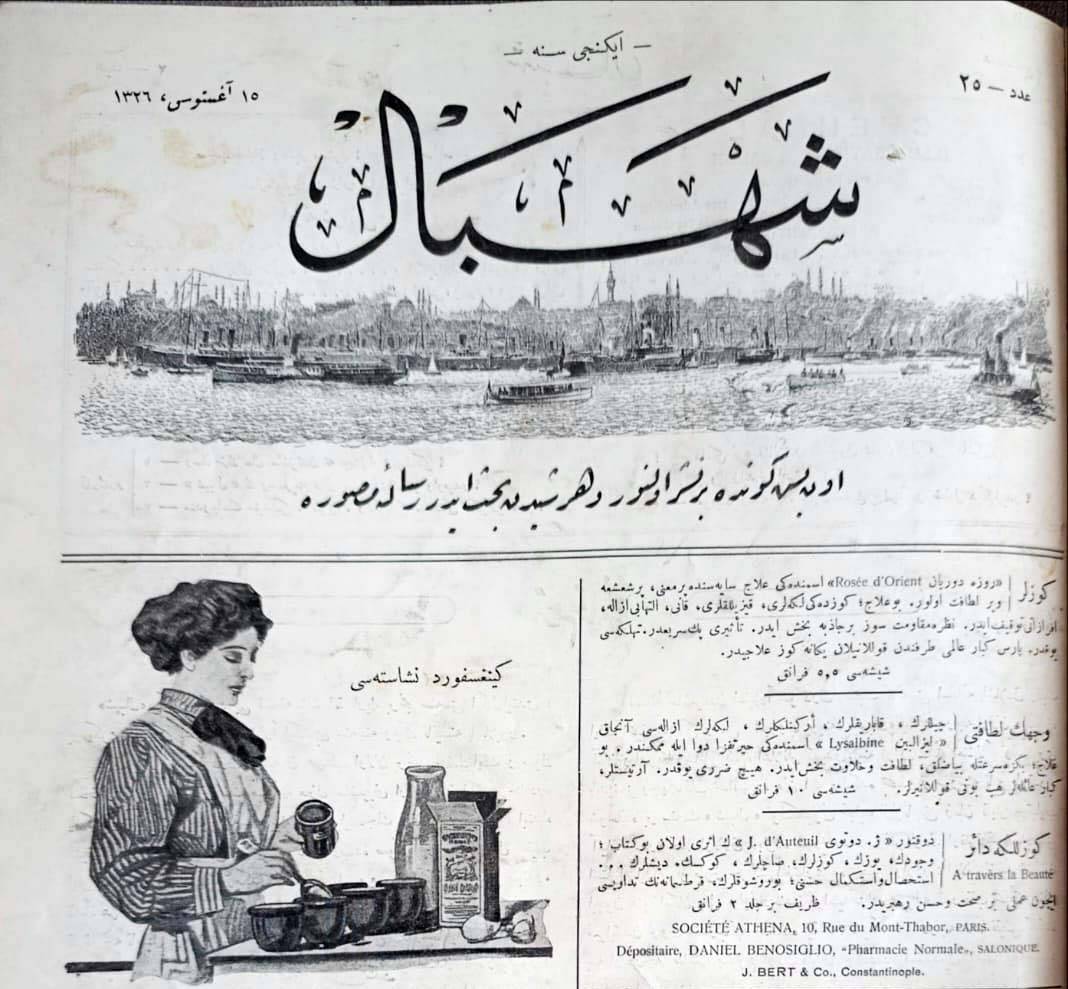 — ایکنجی سنه —
عدد — ٢٥
١٥ آغستوسی، ١٣٢٦
شهبال
اون بش كونده بر نشر اولنور و هر شیدن بحث ایدر رساله مصوره
كینغسفورد نشاسته‌سی
كوزلر | «روزه دوریان Rosée d'Orient» اسمنده‌كی علاج سایه‌سنده برمعنی، برشعشعه
و بر لطافت اولور. بوعلاج؛ كوزده‌كی لكه‌لری، قیزیللقلری، قانی، التهابی ازاله،
افرازاتی توقیف ایدر. نظره مقاومت سوز برجاذبه بخش ایدر. تأثیری پك سریعدر. تهلكه‌سی
یوقدر. پارس كبار عالمی طرفندن قوللانیلان یكانه كوز علاجیدر.
شیشه‌سی ٥,٥ فرانق
وجهك لطافتی | چیللرك ، قاباریقلرك ، أركنلكلرك ، لكه‌لرك ازاله‌سی آنجاق
« لیزالبین Lysalbine » اسمنده‌كی حیرتفزا دوا ایله ممكندر . بو
علاج؛ بكزه سرعتله بیاضلق، لطافت و حلاوت بخش ایدر. هیچ ضرری یوقدر. آرتیستلر،
كبار عائله‌لر هپ بونی قوللانیرلر. شیشه‌سی ١٠ فرانق
كوزللكه دائر | دوقتور « ژ. دوتوی J. d'Auteuil » ك اثری اولان بوكتاب ؛
A travèrs la Beauté | وجودك، یوزك، كوزلرك، صاچلرك ، كوكسك، دیشلرك ...
استحصال و استكمال حسنی؛ بوروشوقلرك، قرط‌مه‌نك تداویسی
ایچون عملی بر صحت و حسن رهبریدر. ظریف بر جلد ٢ فرانق
SOCIÉTÉ ATHENA, 10, Rue du Mont-Thabor, PARIS.
Dépositaire, DANIEL BENOSIGLIO, "Pharmacie Normale», SALONIQUE.
J. BERT & Co., Constantinople.